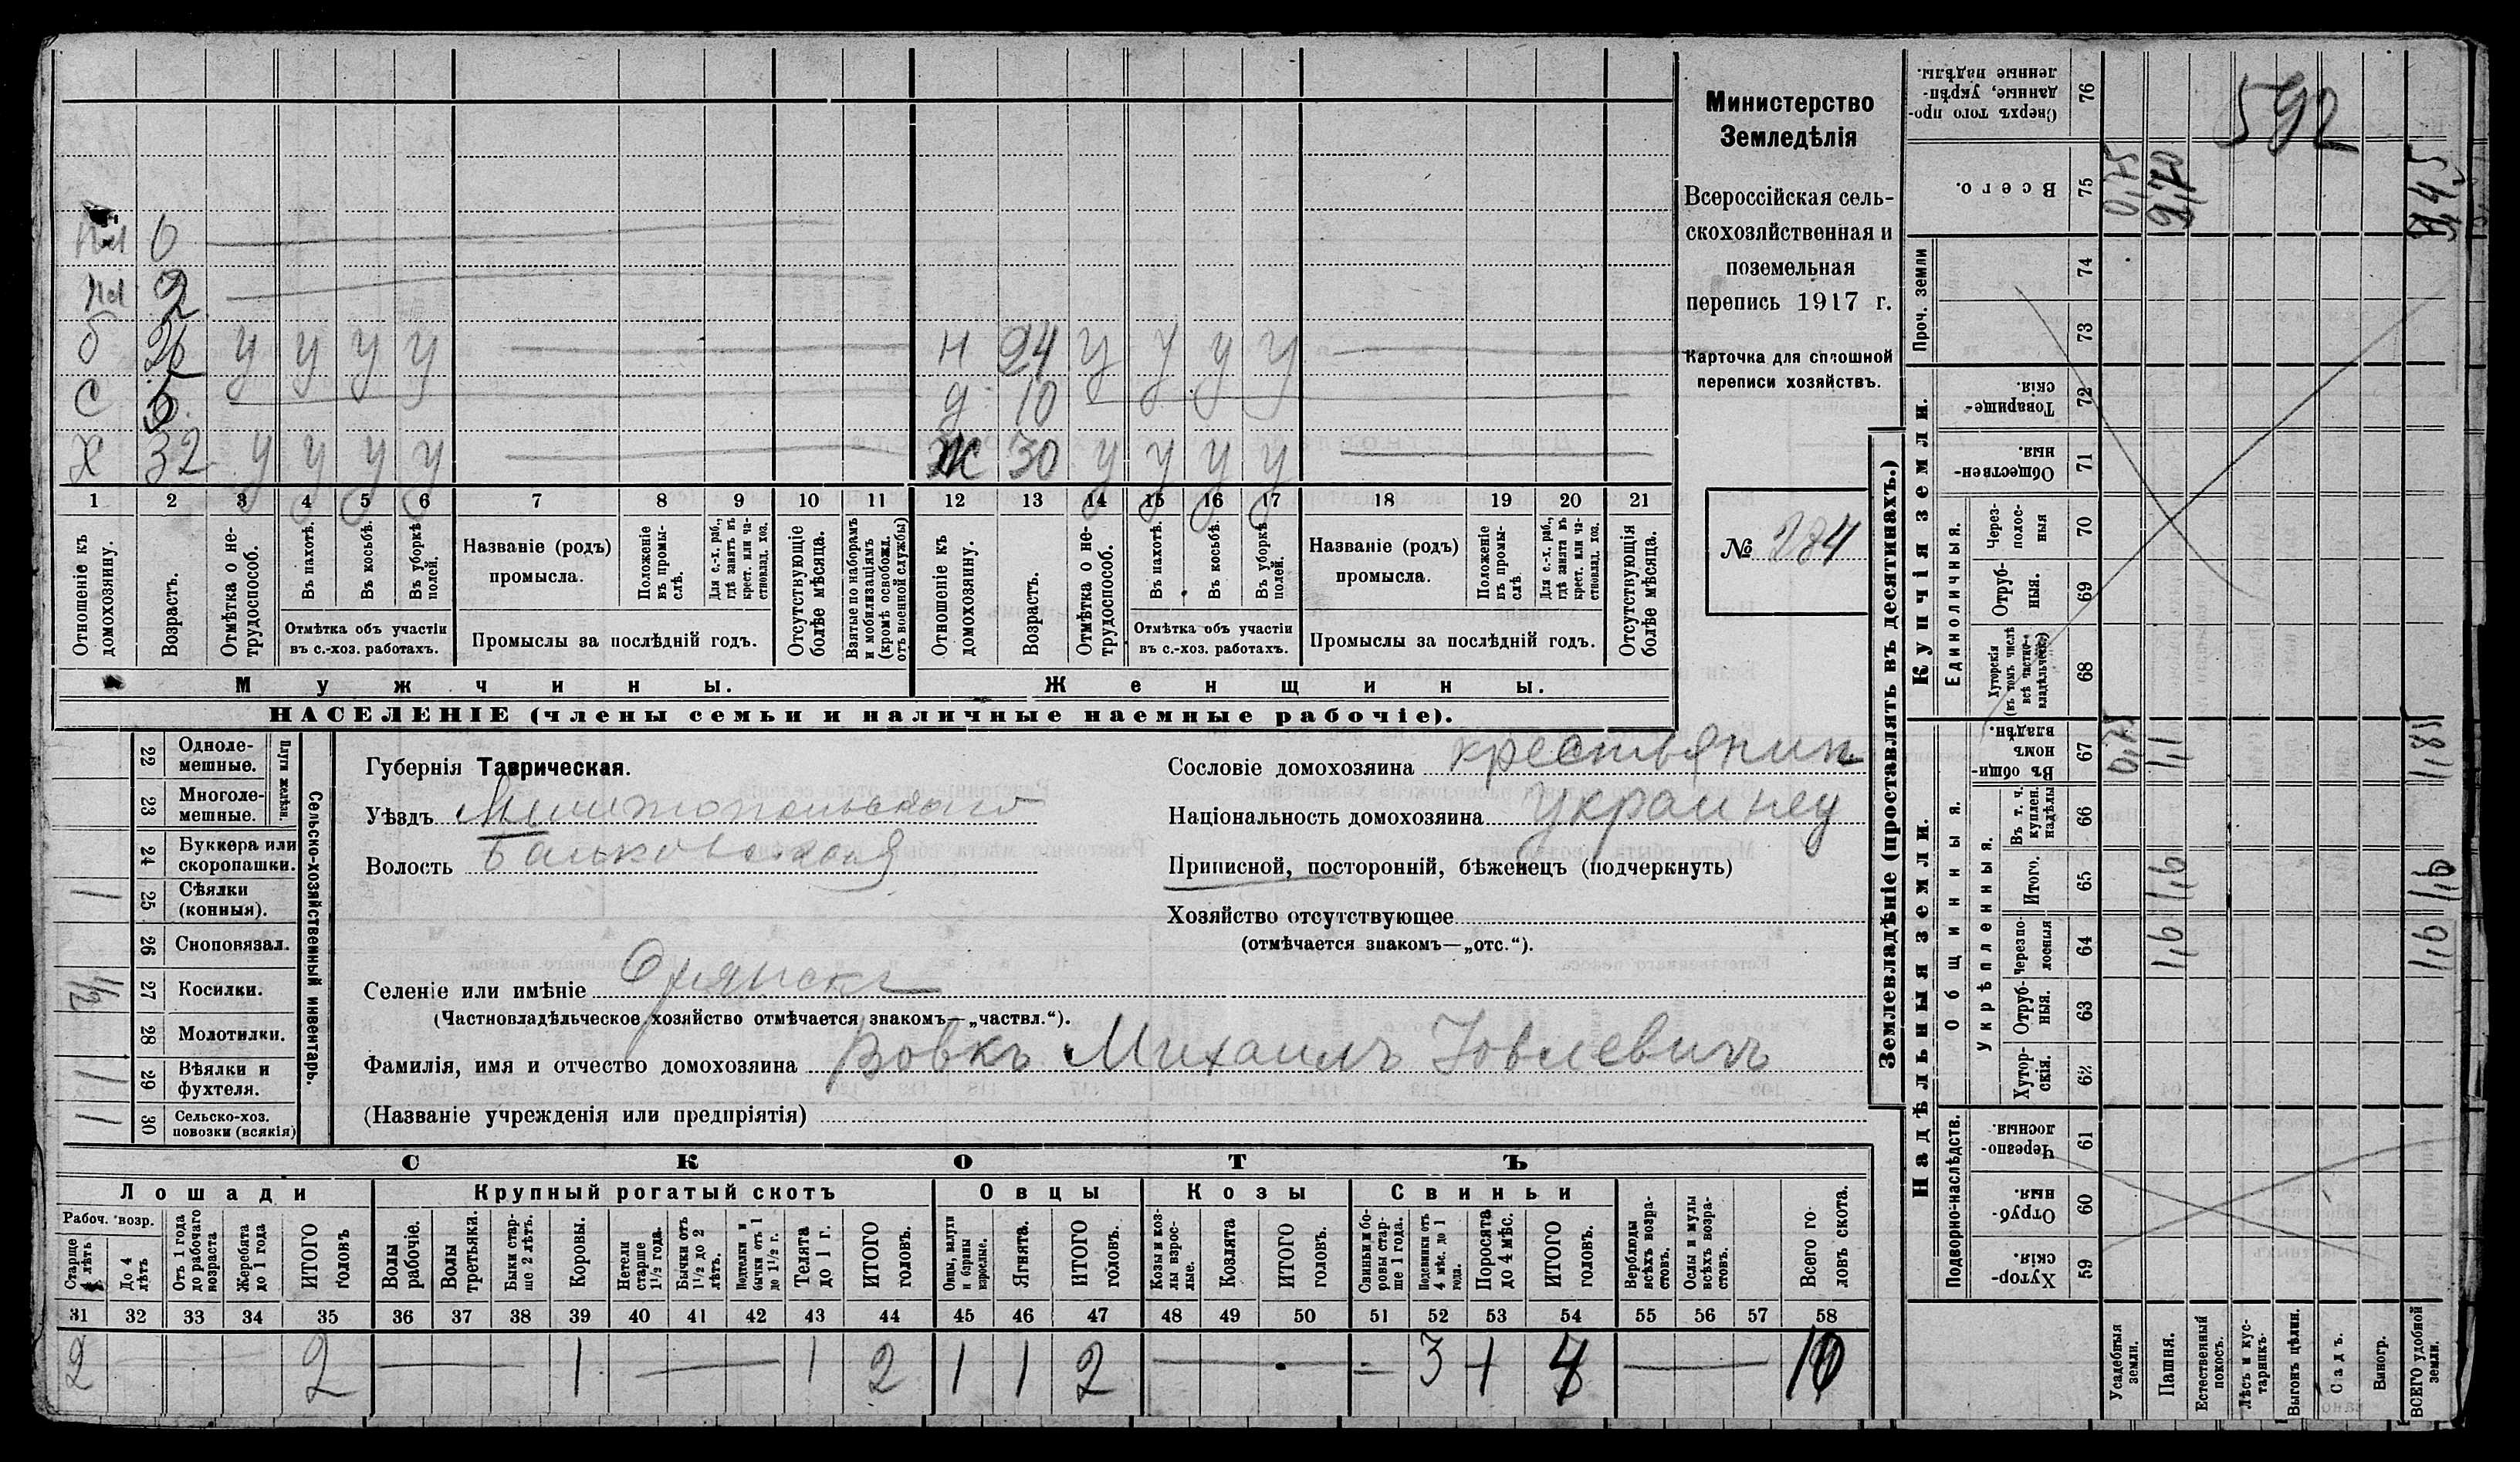 592
Министерство
Земледѣлія
Всероссійская сель-
скохозяйственная и
поземельная
перепись 1917 г.
Карточка для сплошной
переписи хозяйствъ.
№ 284
Пл 6
Пл 2
б 26 у у у у
н 24 у у у у
с 5
д 10
х 32 у у у у
ж 30 у у у у
1 2 3 4 5 6 7 8 9 10 11 12 13 14 15 16 17 18 19 20 21
Отношеніе къ домохозяину.
Возрастъ.
Отмѣтка о не-
трудоспособ.
Въ пахотѣ.
Въ косьбѣ.
Въ уборкѣ полей.
Отмѣтка объ участіи
въ с.-хоз. работахъ.
Названіе (родъ)
промысла.
Положеніе въ промы-
слѣ.
Для с.-х. раб., гдѣ занятъ въ крест. или ча-
стновлад. хоз.
Промыслы за послѣдній годъ.
Отсутствующіе болѣе мѣсяца.
Взятые по наборамъ и мобилизаціямъ (кромѣ освобожд. отъ военной службы)
Отношеніе къ домохозяину.
Возрастъ.
Отмѣтка о не-
трудоспособ.
Въ пахотѣ.
Въ косьбѣ.
Въ уборкѣ полей.
Отмѣтка объ участіи
въ с.-хоз. работахъ.
Названіе (родъ)
промысла.
Положеніе въ промы-
слѣ.
Для с.-х. раб., гдѣ занята въ крест. или ча-
стновлад. хоз.
Промыслы за послѣдній годъ.
Отсутствующія болѣе мѣсяца.
Мужчины.
Женщины.
НАСЕЛЕНІЕ (члены семьи и наличные наемные рабочіе).
Сельско-хозяйственный инвентарь.
Плуги желѣзн.
22 Одноле-
мешные.
23 Многоле-
мешные.
24 Буккера или
скоропашки.
1 25 Сѣялки
(конныя).
26 Сноповязал.
1/2 27 Косилки.
28 Молотилки.
1 29 Вѣялки и
фухтеля.
1 30 Сельско-хоз.
повозки (всякія)
Губернія Таврическая.
Уѣздъ Мелитопольскаго
Волость Балковская
Сословіе домохозяина крестьянин
Національность домохозяина украинец
Приписной, посторонній, бѣженецъ (подчеркнуть)
Хозяйство отсутствующее
(отмѣчается знакомъ—„отс.“).
Селеніе или имѣніе
(Частновладѣльческое хозяйство отмѣчается знакомъ—„частвл.“).
Фамилія, имя и отчество домохозяина Вовкъ Михаилъ Іовлевичъ
(Названіе учрежденія или предпріятія)
СКОТЪ
Лошади
Крупный рогатый скотъ
Овцы
Козы
Свиньи
Рабоч. возр.
Старше 4 лѣтъ
До 4 лѣтъ
Отъ 1 года до рабочаго возраста
Жеребята до 1 года
ИТОГО головъ
Волы рабочіе.
Волы третьяки.
Быки стар-
ше 2 лѣтъ.
Коровы.
Нетели старше 1½ года.
Бычки отъ 1½ до 2 лѣтъ.
Подтелки и бычки отъ 1 до 1½ г.
Телята до 1 г.
ИТОГО головъ.
Овцы, валухи и бараны взрослые.
Ягнята.
ИТОГО головъ.
Козы и коз-
лы взрос-
лые.
Козлята
ИТОГО головъ.
Свиньи и бо-
ровы стар-
ше 1 года.
Подсвинки отъ 4 мѣс. до 1 года.
Поросята до 4 мѣс.
ИТОГО головъ.
Верблюды всѣхъ возра-
стовъ.
Ослы и мулы всѣхъ возра-
стовъ.
Всего го-
ловъ скота.
31 32 33 34 35 36 37 38 39 40 41 42 43 44 45 46 47 48 49 50 51 52 53 54 55 56 57 58
2 — — 2 — 1 — 1 2 1 1 2 — — 3 1 — 10
Землевладѣніе (проставлять въ десятинахъ.)
Надѣльныя земли.
Купчія земли.
Проч. земли
Подворно-наслѣдств.
Общинныя.
Укрѣпленныя.
Единоличныя.
Сверхъ того про-
данные, укрѣп-
ленные надѣлы. 76
Всего. 75 0,75 9,70
74
73
Товарище-
скія. 72
Обществен-
ныя. 71
Через-
полос-
ныя 70
Отруб-
ныя. 69
Хуторскія (въ томъ числѣ всѣ частно-
владѣльческ.) 68
Въ общин-
номъ владѣн. 67 0,75 1,1 1,85
Въ т. ч. куплен. надѣлы 66
Итого. 65 1,6 1,6
Черезпо-
лосныя 64 1,6 1,6
Отруб-
ныя. 63
Хутор-
скія. 62
Черезпо-
лосныя. 61
Отруб-
ныя. 60
Хутор-
скія. 59
Усадебныя земли.
Пашня.
Естественный покосъ.
Лѣсъ и кус-
тарникъ.
Выгонъ цѣлин.
Садъ.
Виногр.
ВСЕГО удобной земли.